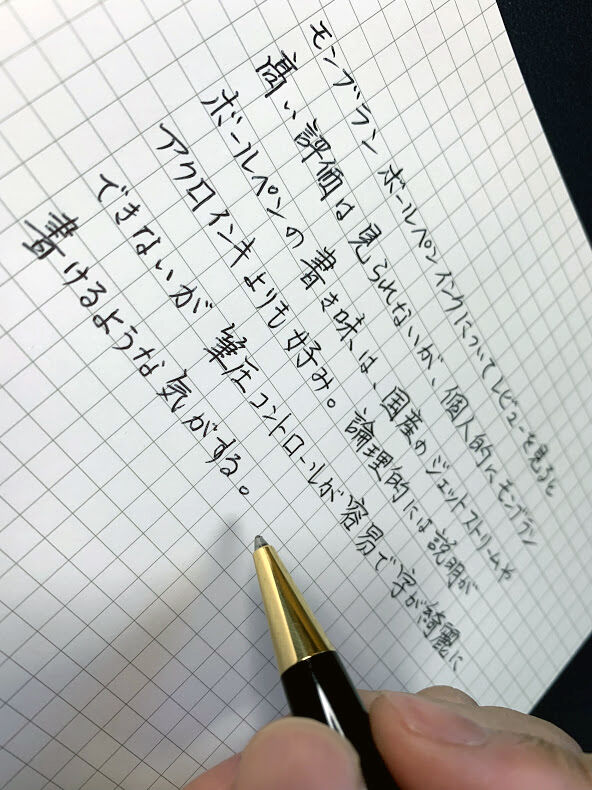 モンブラン ボールペンインクについてレビューを見ると
高い評価は見られないが、個人的にモンブラン
ボールペンの書き味は、国産のジェットストリームや
アクロインキよりも好み。論理的には説明が
できないが筆圧コントロールが容易で字が綺麗に
書けるような気がする。